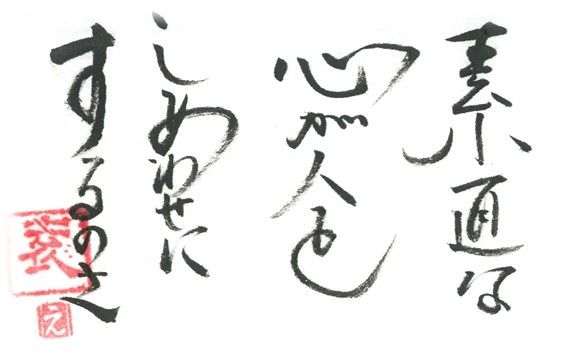 素直な
心が人を
しあわせに
するのさ
え